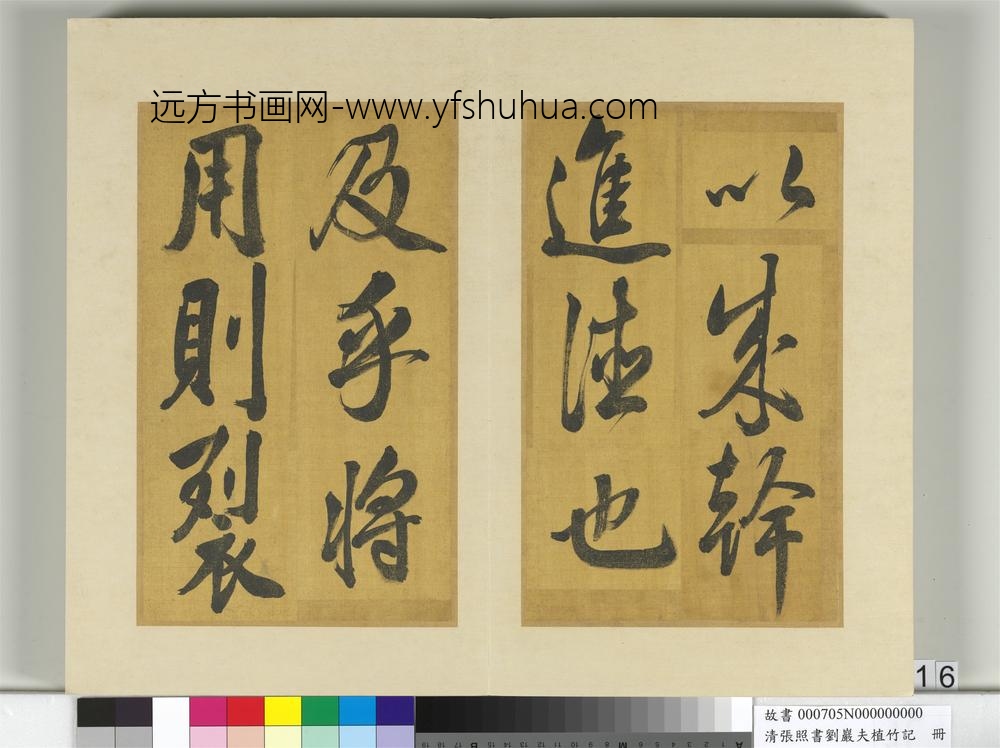 远方书画网-www.yfshuhua.com
以成幹
進德也
及乎將
用則裂
16
故書 000705N000000000
清張照書劉巖夫植竹記 冊